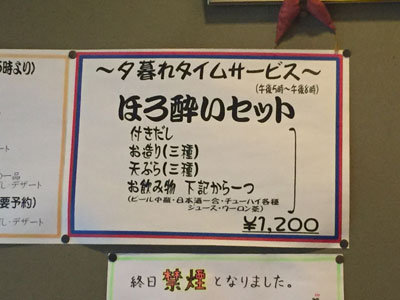 ～夕暮れタイムサービス～
(午後5時～午後8時)
ほろ酔いセット
付きだし
お造り(三種)
天ぷら(三種)
お飲み物 下記から一つ
(ビール中瓶・日本酒一合・チューハイ各種
ジュース・ウーロン茶)
¥1,200
終日 禁煙 となりました。
時より)
一品
だし・デザート
要予約)
だし・デザート